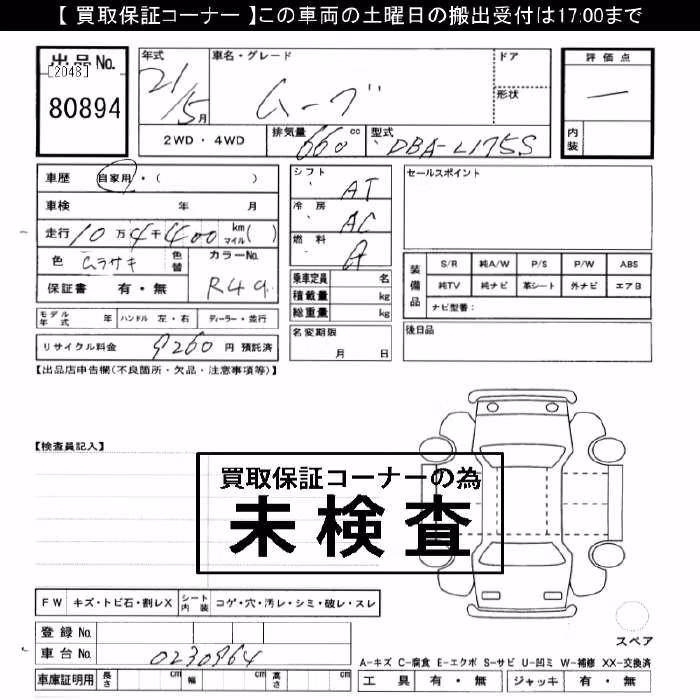 【 買取保証コーナー 】この車両の土曜日の搬出受付は17:00まで
出品No. [2048] 80894
年式 21/5月
車名・グレード ムーブ
ドア
形状
評価点 ―
内装
2WD・4WD
排気量 660 cc
型式 DBA-L175S
車歴 自家用・( )
車検 年 月
走行 10万4千400 km マイル( )
色 ムラサキ 色替
カラーNo. R49
保証書 有・無
モデル年式 年 ハンドル 左・右 ディーラー・並行
リサイクル料金 9260 円 預託済
シフト AT
冷房 AC
燃料 A
乗車定員 名
積載量 kg
総重量 kg
名変期限 月 日
セールスポイント
装備品
S/R 純A/W P/S P/W ABS
純TV 純ナビ 革シート 外ナビ エアB
ナビ型番:
後日品
【出品店申告欄(不良箇所・欠品・注意事項等)】
【検査員記入】
買取保証コーナーの為
未検査
FW キズ・トビ石・割レX シート内装 コゲ・穴・汚レ・シミ・破レ・スレ
登録No.
車台No. 0230964
車庫証明用 長さ cm 幅 cm 高さ cm
スペア
A-キズ C-腐食 E-エクボ S-サビ U-凹ミ W-補修 XX-交換済
工具 有・無 ジャッキ 有・無